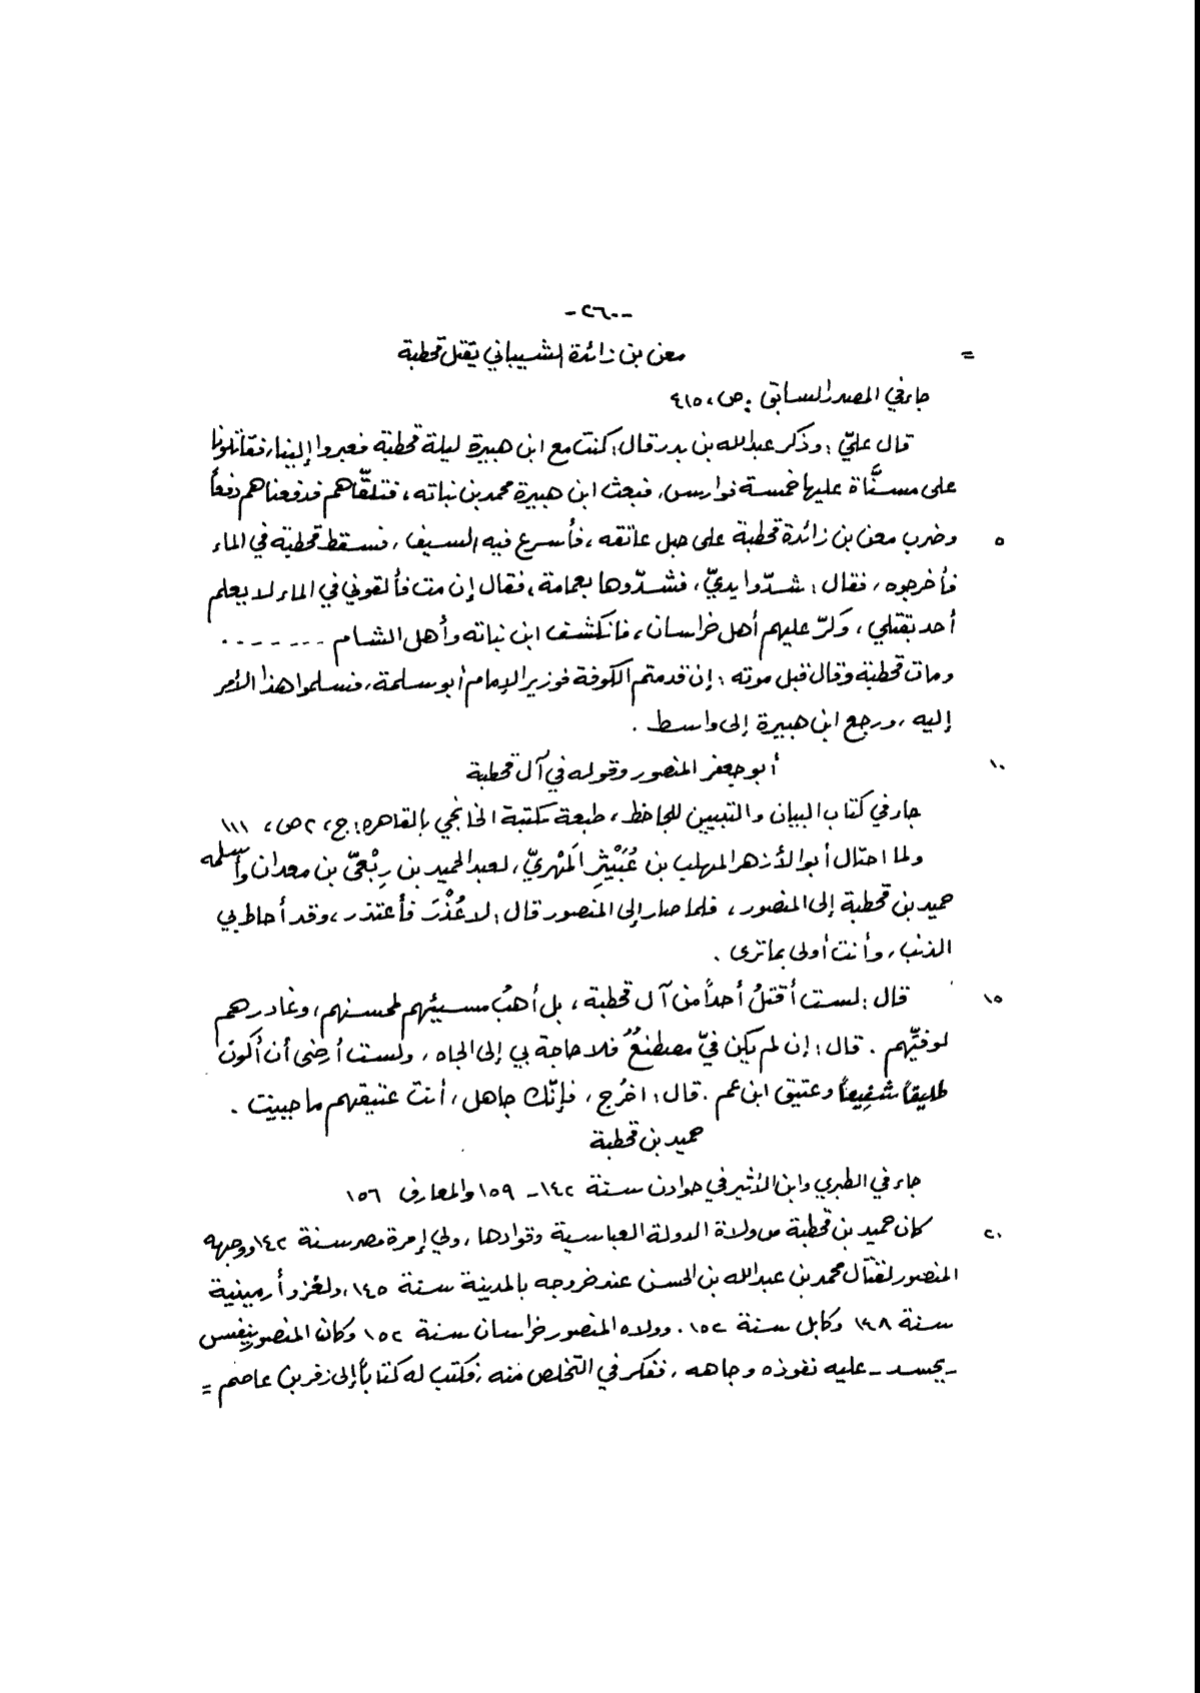 -٢٦٠-
= معن بن زائدة الشيباني يقتل قحطبة
جاء في المصدر السابق . ص، ٤١٥
قال عليّ : وذكر عبد الله بن بدر قال : كنت مع ابن هبيرة ليلة قحطبة فعبروا إلينا، فقاتلونا
على مسنَّاة عليها خمسة فوارس، فبعث ابن هبيرة محمد بن نباته ، فتلقّاهم فدفعناهم دفعاً
٥ وضرب معن بن زائدة قحطبة على حبل عاتقه ، فأسرع فيه السيف ، فسقط قحطبة في الماء
فأخرجوه ، فقال : شدّوا يديّ ، فشدّوها بعمامة ، فقال إن مت فألقوني في الماء لا يعلم
أحد بقتلي ، وكرّ عليهم أهل خراسان ، فانكشف ابن نباته وأهل الشام .......
ومات قحطبة وقال قبل موته : إن قدمتم الكوفة فوزير الإمام أبو سلمة ، فسلموا هذا الأمر
إليه ، ورجع ابن هبيرة إلى واسط .
١٠ أبو جعفر المنصور وقوله في آل قحطبة
جاء في كتاب البيان والتبيين للجاحظ ، طبعة مكتبة الخانجي بالقاهرة : ج، ٢ ص، ١١١
ولما احتال أبو الأزهر المهلب بن عُبَيْثِرِ المَهْريّ ، لعبد الحميد بن رِبْعيّ بن معدان وأسلمه
حميد بن قحطبة إلى المنصور ، فلما صار إلى المنصور قال : لا عُذْرَ فأعتذر ، وقد أحاط بي
الذنب ، وأنت أولى بما ترى .
١٥ قال : لست أقتلُ أحداً من آل قحطبة ، بل أهبُ مسيئهم لمحسنهم ، وغادرهم
لوفيّهم . قال : إن لم يكن فيّ مصطنعٌ فلا حاجة بي إلى الجاه ، ولست أرضى أن أكون
طليقاً شفيعاً وعتيق ابن عم . قال : اخرُج ، فإنّك جاهل ، أنت عتيقهم ما حييت .
حميد بن قحطبة
جاء في الطبري وابن الأثير في حوادث سنة ١٤٢ - ١٥٩ والمعارف ١٥٦
٢٠ كان حميد بن قحطبة من ولاة الدولة العباسية وقوادها ، ولي إمرة مصر سنة ١٤٢ ووجهه
المنصور لقتال محمد بن عبد الله بن الحسن عند خروجه بالمدينة سنة ١٤٥ ، ولغزو أرمينية
سنة ١٤٨ وكابل سنة ١٥٢ . وولاه المنصور خراسان سنة ١٥٢ وكان المنصور ينفس
- يحسد - عليه نفوذه وجاهه ، ففكر في التخلص منه ، فكتب له كتاباً إلى زفر بن عاصم =